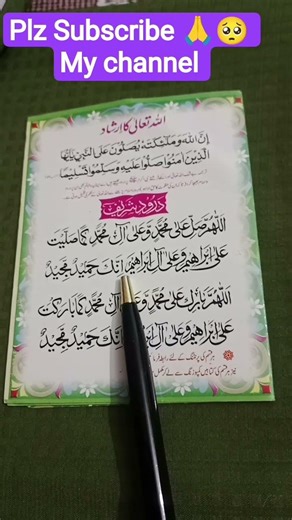 Plz Subscribe 🙏🥺
My channel
اللہ تعالیٰ کا ارشاد
اِنَّ اللهَ وَمَلٰٓئِكَتَهٗ يُصَلُّوْنَ عَلَى النَّبِيِّ يٰٓاَيُّهَا
الَّذِيْنَ اٰمَنُوْا صَلُّوْا عَلَيْهِ وَسَلِّمُوْا تَسْلِيْمًا
درود شریف
اَللّٰهُمَّ صَلِّ عَلٰى مُحَمَّدٍ وَّعَلٰى اٰلِ مُحَمَّدٍ كَمَا صَلَّيْتَ
عَلٰى اِبْرَاهِيْمَ وَعَلٰى اٰلِ اِبْرَاهِيْمَ اِنَّكَ حَمِيْدٌ مَّجِيْدٌ
اَللّٰهُمَّ بَارِكْ عَلٰى مُحَمَّدٍ وَّعَلٰى اٰلِ مُحَمَّدٍ كَمَا بَارَكْتَ
عَلٰى اِبْرَاهِيْمَ وَعَلٰى اٰلِ اِبْرَاهِيْمَ اِنَّكَ حَمِيْدٌ مَّجِيْدٌ
ہر قسم کی پرنٹنگ کے لئے رابطہ